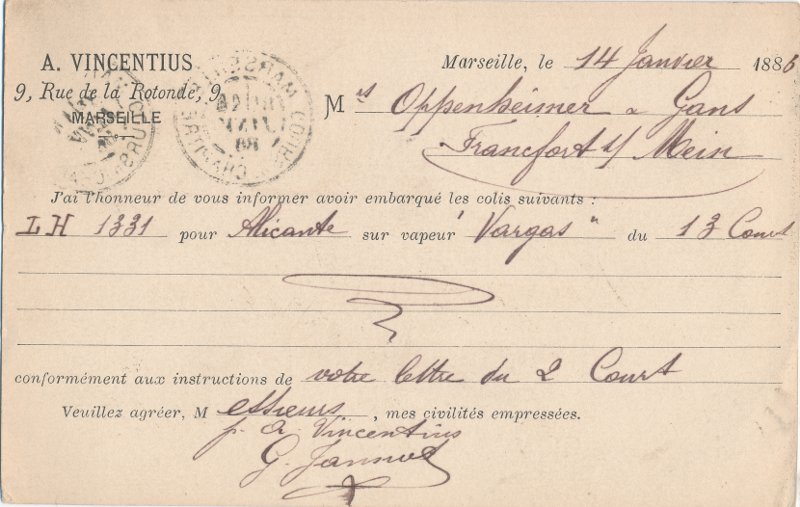 A. VINCENTIUS
9, Rue de la Rotonde, 9
MARSEILLE
Marseille, le 14 Janvier 1886
Mrs Oppenheimer & Gans
Francfort s/ Mein
J'ai l'honneur de vous informer avoir embarqué les colis suivants :
LH 1331 pour Alicante sur vapeur "Vargas" du 13 Court
conformément aux instructions de votre lettre du 2 Court
Veuillez agréer, Messieurs, mes civilités empressées.
p. A. Vincentius
G.